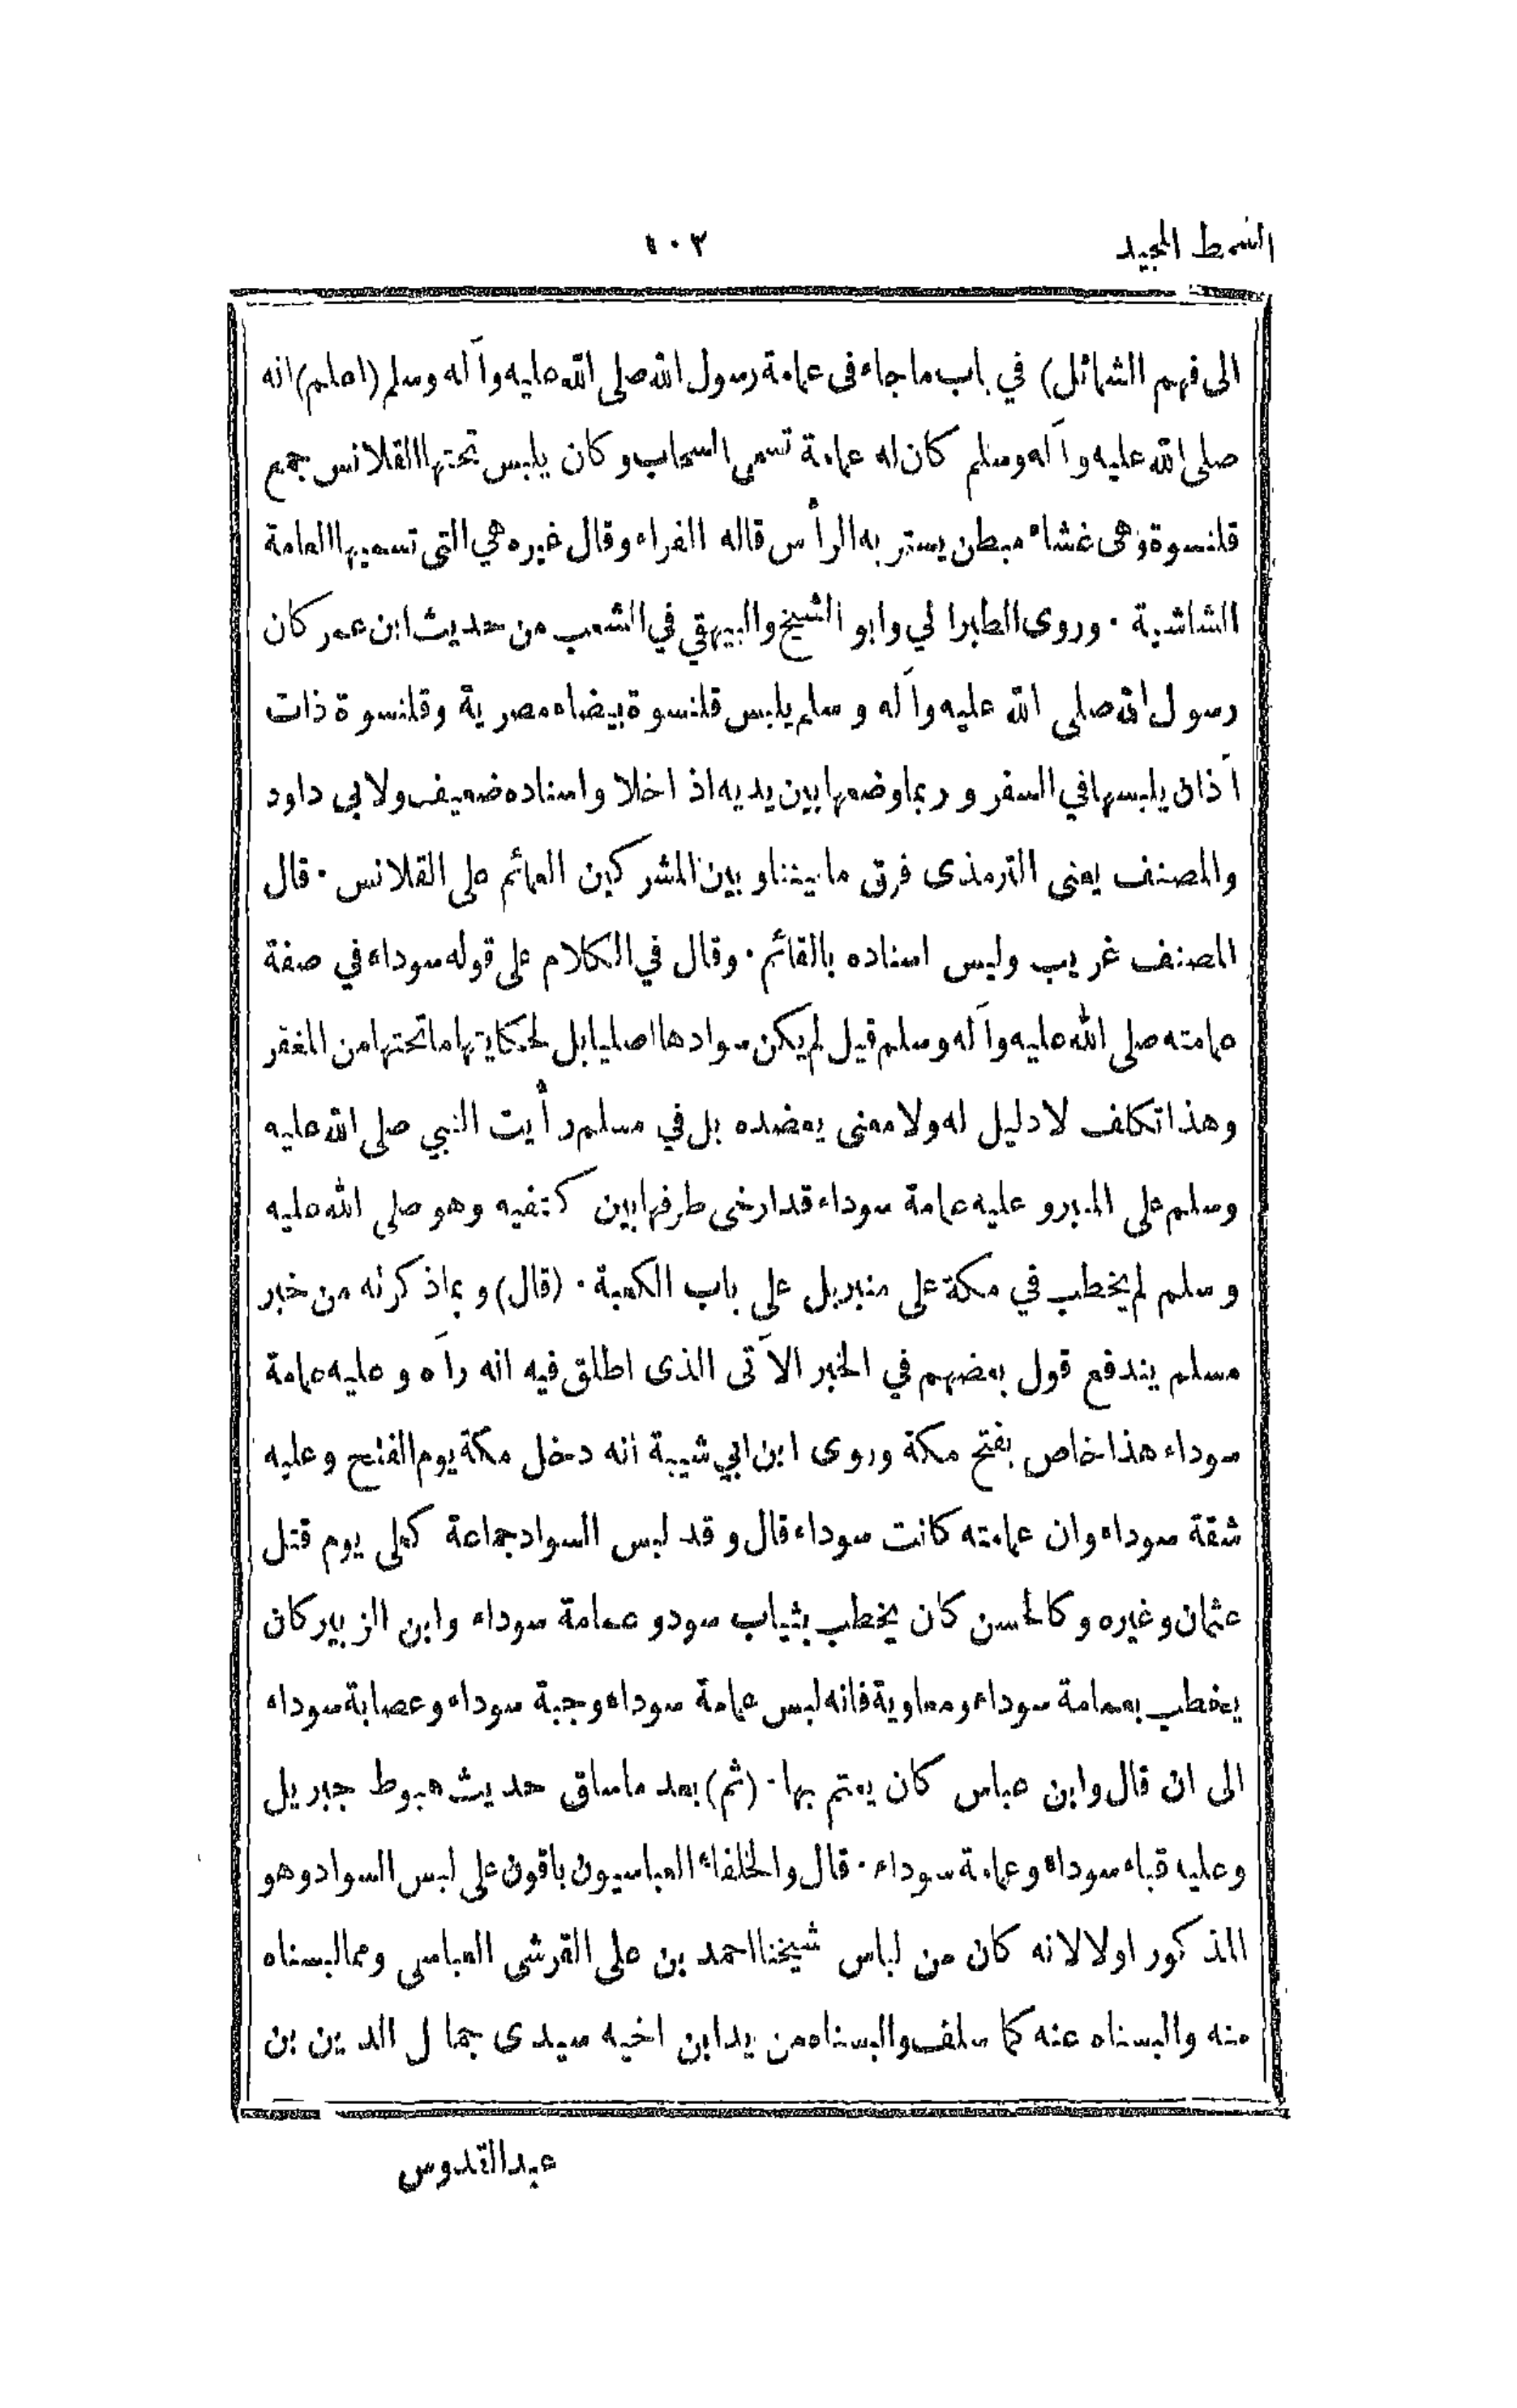 السمط المجيد
١٠٣
الى فهم الشمائل) في باب ماجاء فى عمامة رسول الله صلى الله عليه وآله وسلم (اعلم) انه
صلى الله عليه وآله وسلم كان له عمامة تسمى السحاب وكان يلبس تحتها القلانس جمع
قلنسوة وهى غشاء مبطن يستر به الرأس قاله الفراء وقال غيره هي التى تسميها العامة
الشاشية . وروى الطبراني وابو الشيخ والبيهقي في الشعب من حديث ابن عمر كان
رسول الله صلى الله عليه وآله وسلم يلبس قلنسوة بيضاء مصرية وقلنسوة ذات
آذان يلبسها في السفر وربما وضعها بين يديه اذا خلا واسناده ضعيف ولابى داود
والمصنف يعنى الترمذى فرق ما بيننا وبين المشركين العمائم على القلانس . قال
المصنف غريب وليس اسناده بالقائم . وقال في الكلام على قوله سوداء في صفة
عمامته صلى الله عليه وآله وسلم قيل لم يكن سوادها اصليا بل لحكايتها ما تحتها من المغفر
وهذا تكلف لا دليل له ولا معنى يعضده بل في مسلم رأيت النبي صلى الله عليه
وسلم على المنبر وعليه عمامة سوداء قد ارخى طرفها بين كتفيه وهو صلى الله عليه
وسلم لم يخطب في مكة على منبر بل على باب الكعبة . (قال) وبما ذكرته من خبر
مسلم يندفع قول بعضهم في الخبر الآتى الذى اطلق فيه انه رآه وعليه عمامة
سوداء هذا خاص بفتح مكة وروى ابن ابي شيبة انه دخل مكة يوم الفتح وعليه
شقة سوداء وان عمامته كانت سوداء قال وقد لبس السواد جماعة كعلى يوم قتل
عثمان وغيره وكالحسن كان يخطب بثياب سود وعمامة سوداء وابن الزبير كان
يخطب بعمامة سوداء ومعاوية فانه لبس عمامة سوداء وجبة سوداء وعصابة سوداء
الى ان قال وابن عباس كان يعتم بها . (ثم) بعد ما ساق حديث هبوط جبريل
وعليه قباء سوداء وعمامة سوداء . قال والخلفاء العباسيون باقون على لبس السواد وهو
المذكور اولا لانه كان من لباس شيخنا احمد بن على القرشى العباسى ومما لبسناه
منه والبسناه عنه كما سلف والبسناه من يد ابن اخيه سيدى جمال الدين بن
عبد القدوس